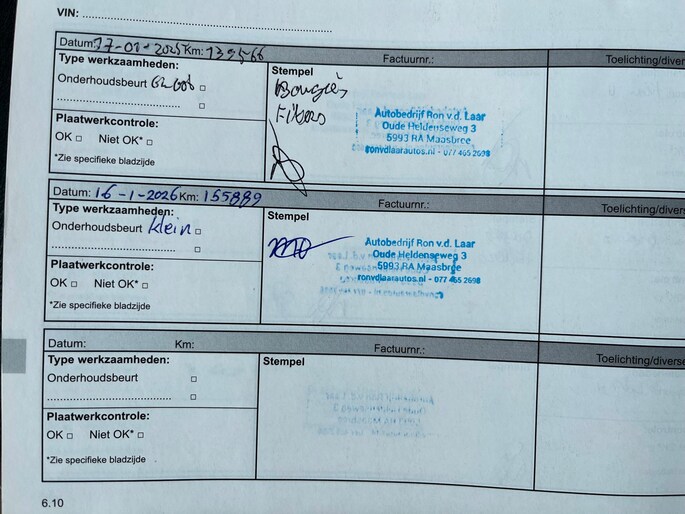 VIN:
Datum: 17-01-2025 Km: 139566 Factuurnr.: Toelichting/diver
Type werkzaamheden:
Onderhoudsbeurt Groot
Stempel
Bougies
Filters
Autobedrijf Ron v.d. Laar
Oude Heldenseweg 3
5993 RA Maasbree
ronvdlaarautos.nl - 077 465 2698
Plaatwerkcontrole:
OK Niet OK*
*Zie specifieke bladzijde
Datum: 16-1-2026 Km: 155889 Factuurnr.: Toelichting/divers
Type werkzaamheden:
Onderhoudsbeurt klein
Stempel
Autobedrijf Ron v.d. Laar
Oude Heldenseweg 3
5993 RA Maasbree
ronvdlaarautos.nl - 077 465 2698
Plaatwerkcontrole:
OK Niet OK*
*Zie specifieke bladzijde
Datum: Km: Factuurnr.: Toelichting/diverse
Type werkzaamheden:
Onderhoudsbeurt
Stempel
Plaatwerkcontrole:
OK Niet OK*
*Zie specifieke bladzijde
6.10